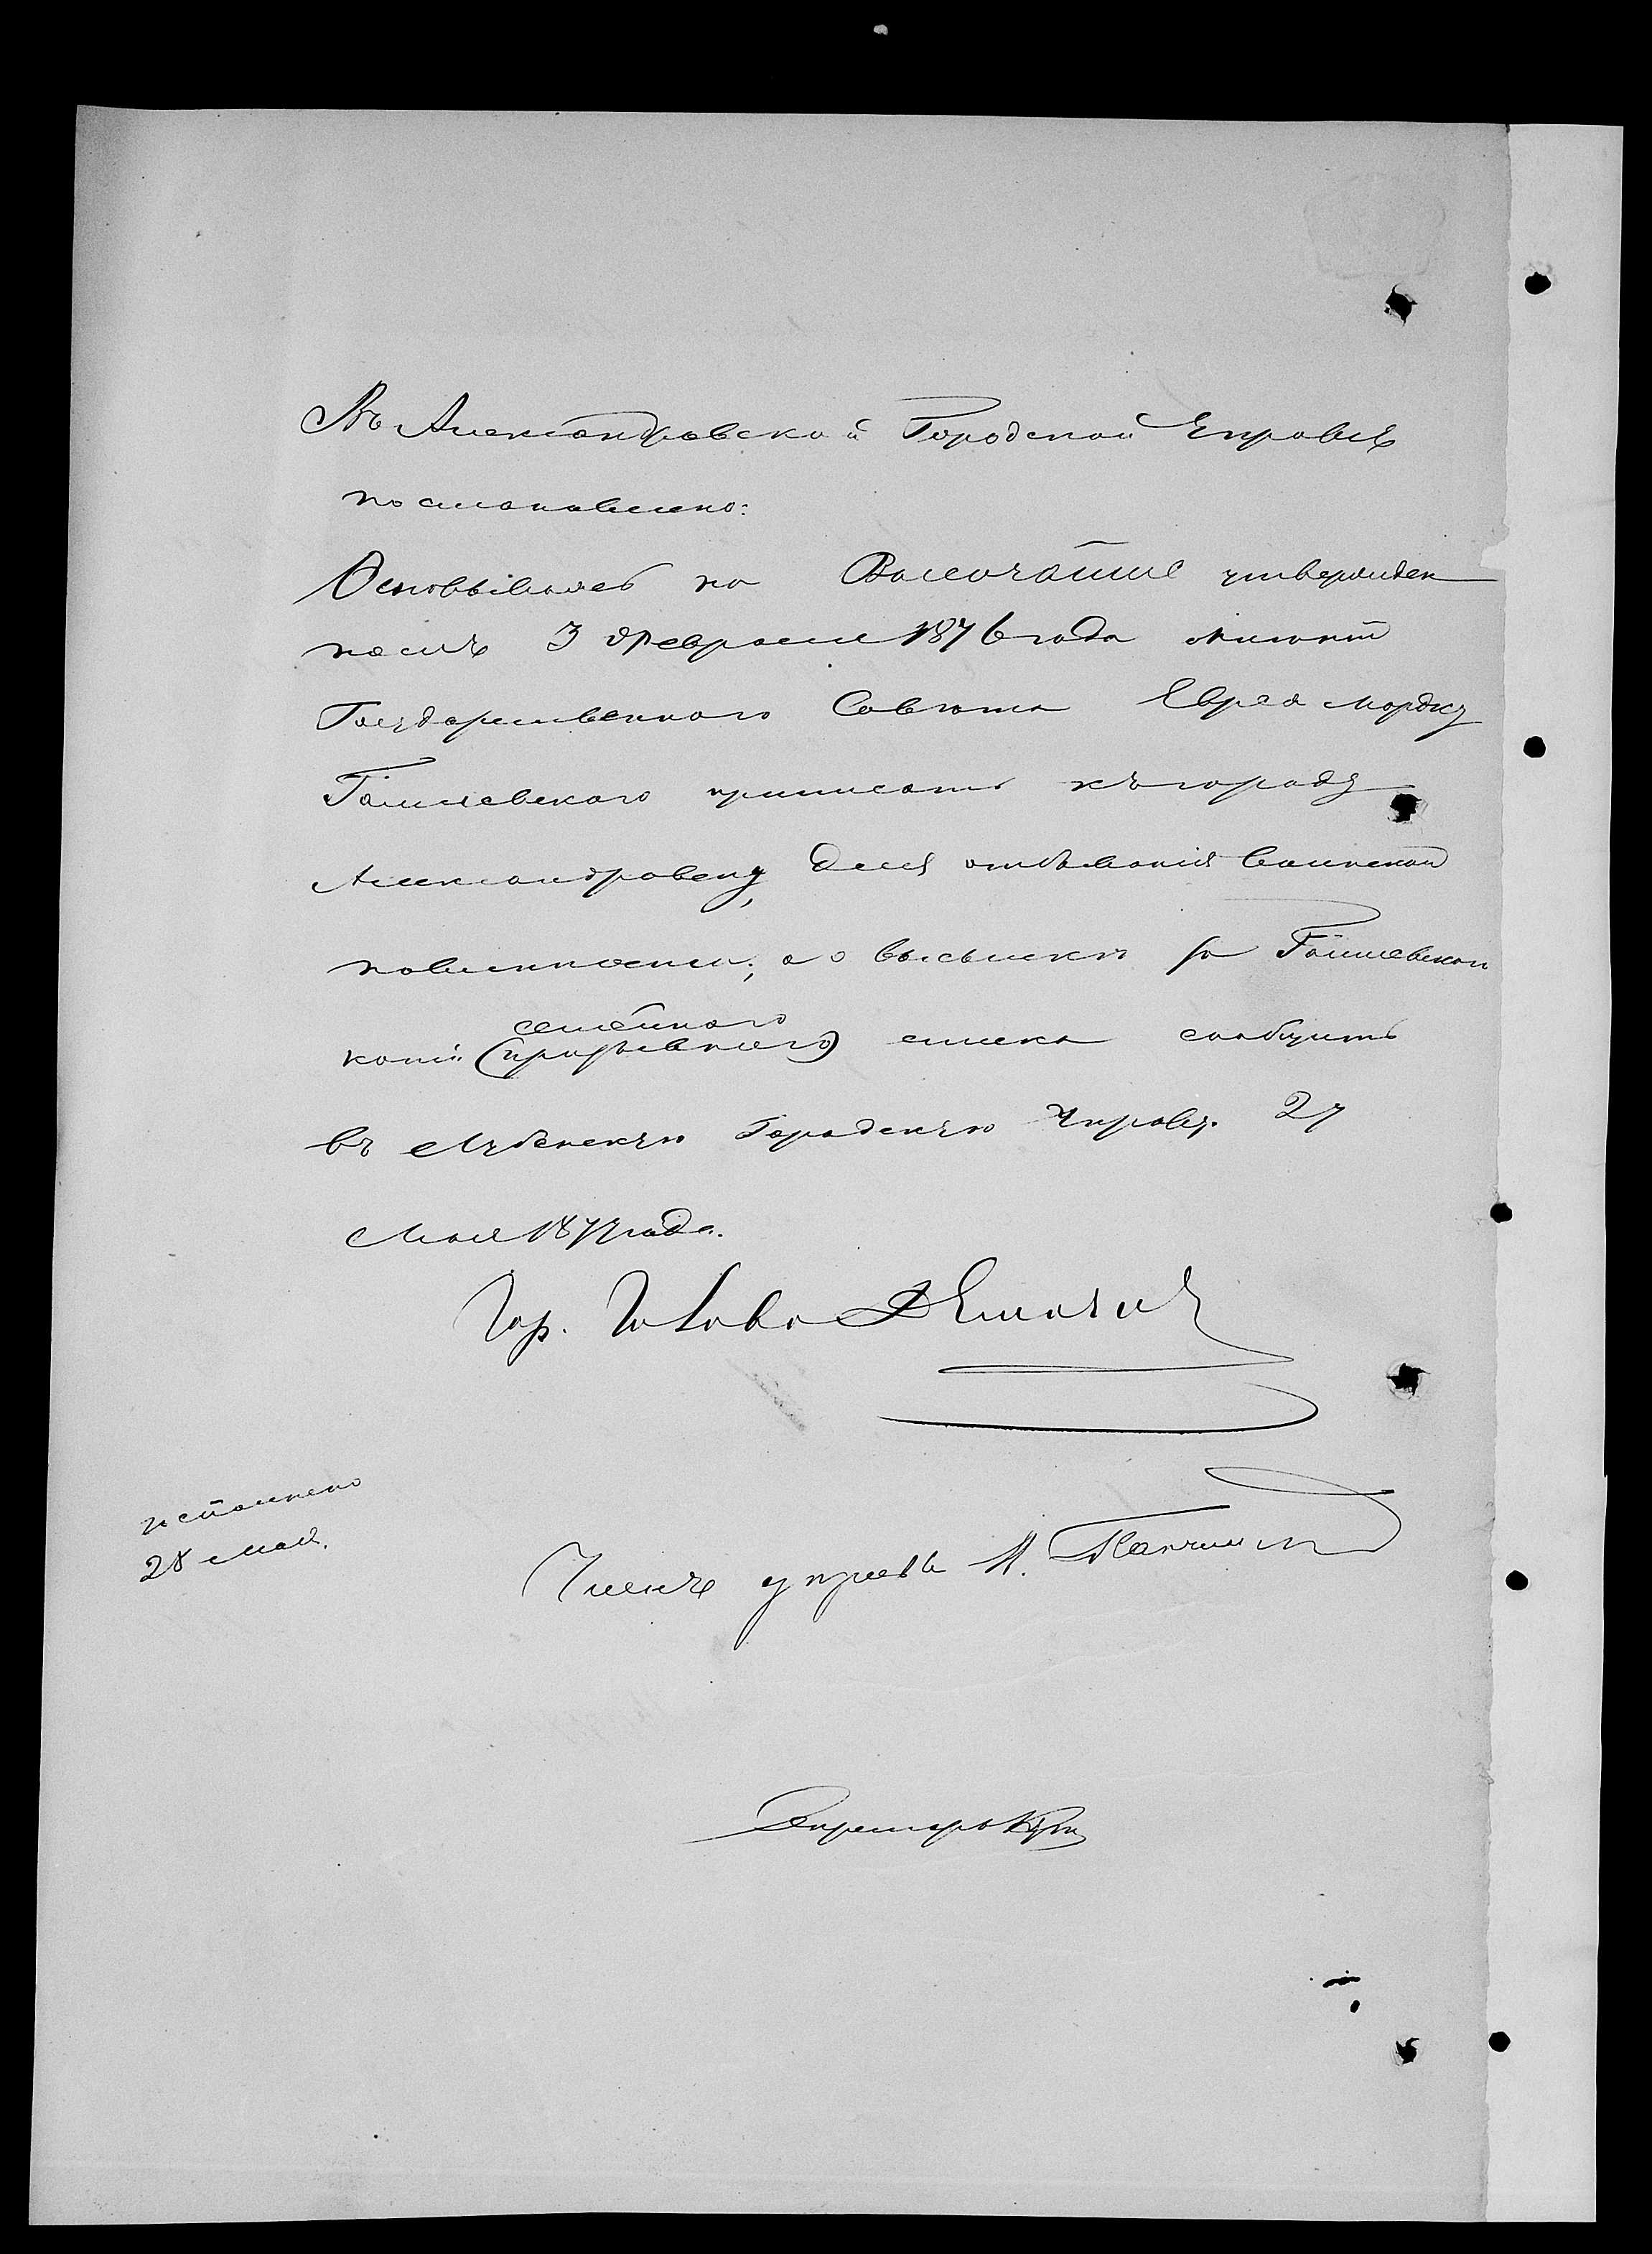 Въ Александровской Городской Управѣ
постановлено:
Основываясь на Высочайше утвержден
номъ 3 Февраля 1876 года мнѣніи
Государственного Совѣта Еврея Мордку
приписать къ городу
Александровску, для отбыванія воинской
повинности; а о высылкѣ
копіи семейного (призывного) списка сообщить
въ Городскую Управу. 27
Мая 1877 года.
Гор. Голова
Членъ управы
Секретарь
исполнено
28 Мая.